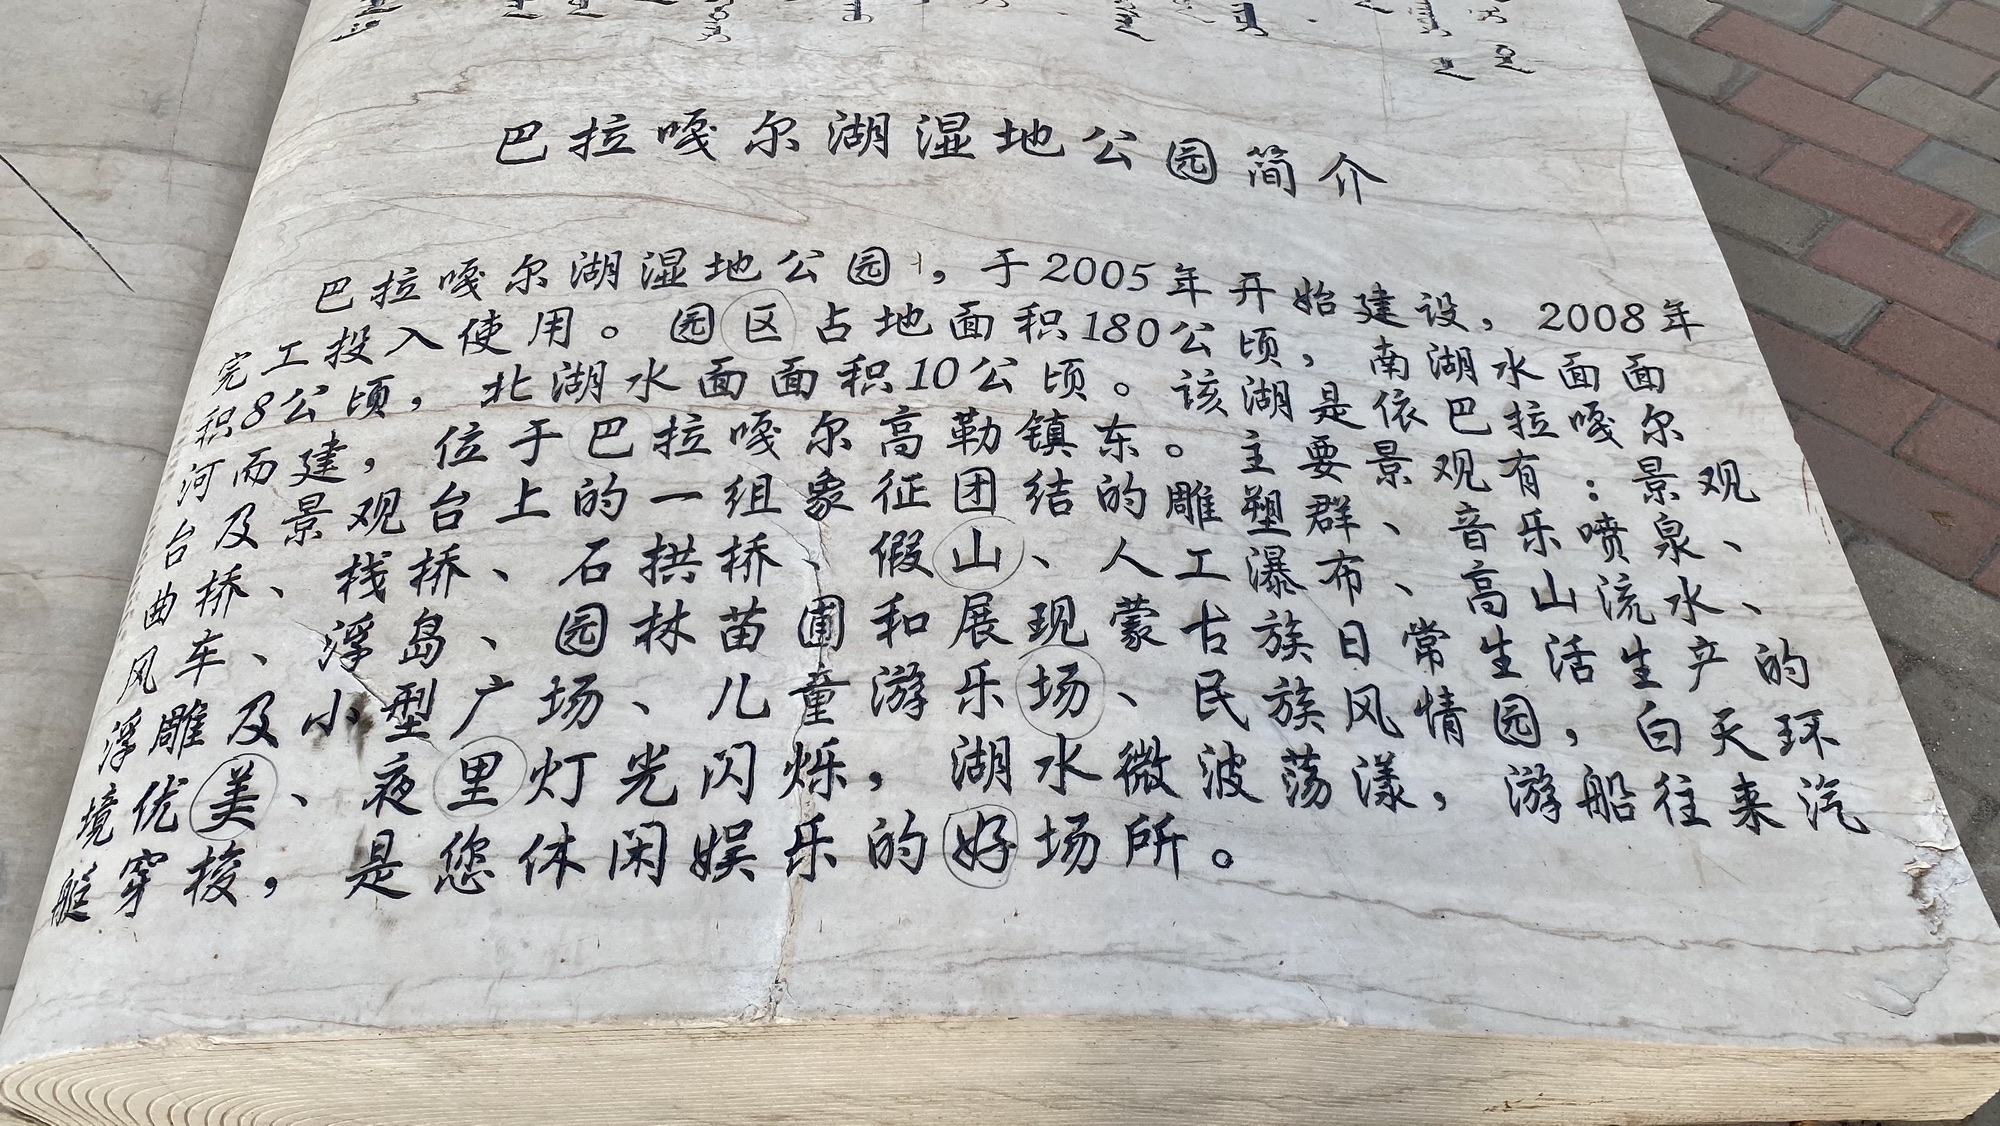 巴拉嘎尔湖湿地公园简介
巴拉嘎尔湖湿地公园，于2005年开始建设，2008年
完工投入使用。园区占地面积180公顷，南湖水面面
积8公顷，北湖水面面积10公顷。该湖是依巴拉嘎尔
河而建，位于巴拉嘎尔高勒镇东。主要景观有：景观
台及景观台上的一组象征团结的雕塑群、音乐喷泉、
曲桥、栈桥、石拱桥、假山、人工瀑布、高山流水、
风车、浮岛、园林苗圃和展现蒙古族日常生活生产的
浮雕及小型广场、儿童游乐场、民族风情园，白天环
境优美、夜里灯光闪烁，湖水微波荡漾，游船往来汽
艇穿梭，是您休闲娱乐的好场所。